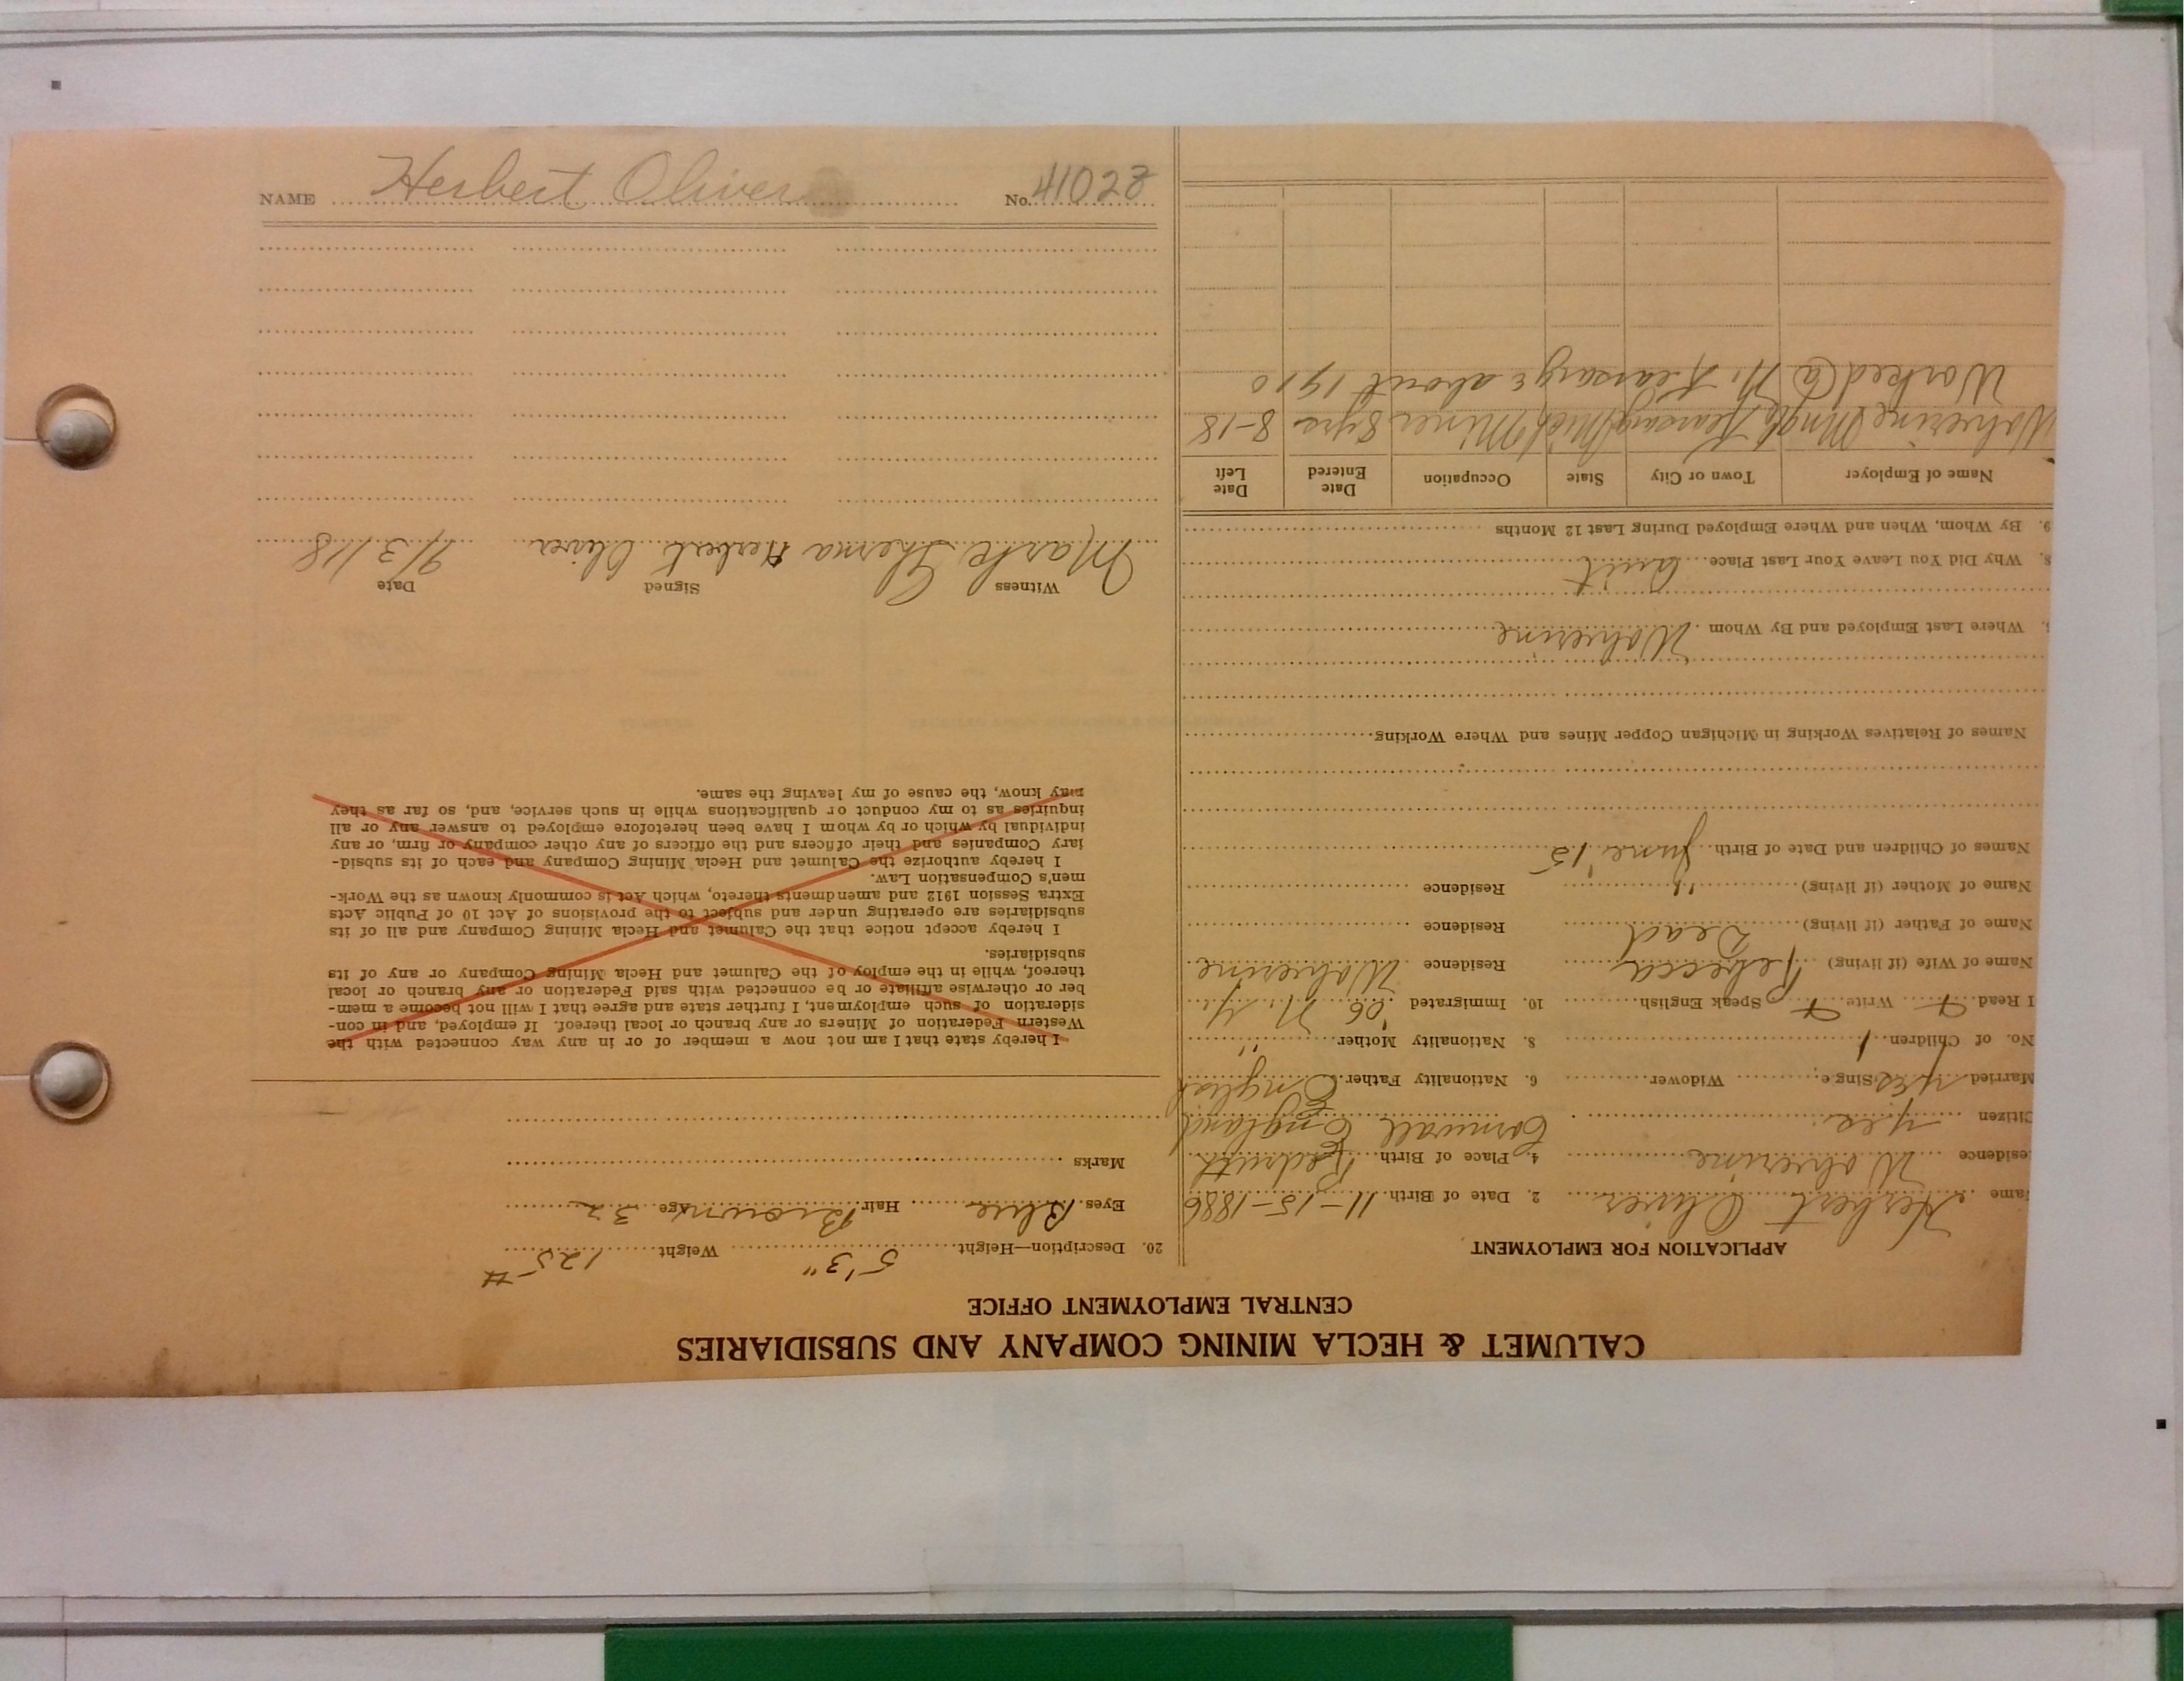 CALUMET & HECLA MINING COMPANY AND SUBSIDIARIES
CENTRAL EMPLOYMENT OFFICE
APPLICATION FOR EMPLOYMENT
ame Herbert Oliver 2. Date of Birth 11-15-1886
esidence Wolverine 4. Place of Birth Redruth
Citizen yes Cornwall England
Married yes Single Widower 6. Nationality Father English
No. of Children 1 8. Nationality Mother "
I Read Write Speak English 10. Immigrated '06 N.Y.
Name of Wife (if living) Rebecca Residence Wolverine
Name of Father (if living) Dead Residence
Name of Mother (if living) " Residence
Names of Children and Date of Birth June '15
Names of Relatives Working in Michigan Copper Mines and Where Working
Where Last Employed and By Whom Wolverine
8. Why Did You Leave Your Last Place quit
9. By Whom, When and Where Employed During Last 12 Months
Name of Employer Town or City State Occupation Date Entered Date Left
Wolverine Mng Co Kearsarge Mich Miner 8 yrs 8-18
Worked @ N. Kearsarge about 1910
20. Description—Height 5'3" Weight 125 #
Eyes Blue Hair Brown Age 32
Marks
I hereby state that I am not now a member of or in any way connected with the
Western Federation of Miners or any branch or local thereof. If employed, and in con-
sideration of such employment, I further state and agree that I will not become a mem-
ber or otherwise affiliate or be connected with said Federation or any branch or local
thereof, while in the employ of the Calumet and Hecla Mining Company or any of its
subsidiaries.
I hereby accept notice that the Calumet and Hecla Mining Company and all of its
subsidiaries are operating under and subject to the provisions of Act 10 of Public Acts
Extra Session 1912 and amendments thereto, which Act is commonly known as the Work-
men's Compensation Law.
I hereby authorize the Calumet and Hecla Mining Company and each of its subsid-
iary Companies and their officers and the officers of any other company or firm, or any
individual by which or by whom I have been heretofore employed to answer any or all
inquiries as to my conduct or qualifications while in such service, and, so far as they
may know, the cause of my leaving the same.
Witness Signed Date
Mark Herbert Oliver 9/3/18
NAME Herbert Oliver No. 41028